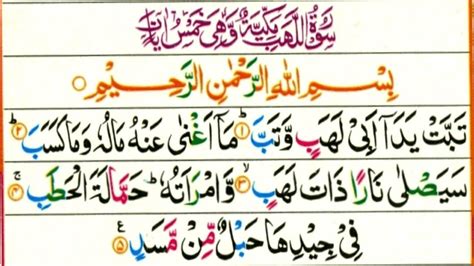 سُوْرَةُ اللَّهَبِ مَكِّيَّةٌ وَّهِىَ خَمْسُ اٰيَاتٍ
بِسْمِ اللهِ الرَّحْمٰنِ الرَّحِيْمِ
تَبَّتْ يَدَاۤ اَبِىْ لَهَبٍ وَّتَبَّ ؕ﴿۱﴾ مَاۤ اَغْنٰى عَنْهُ مَالُهٗ وَمَا كَسَبَ ؕ﴿۲﴾
سَيَصْلٰى نَارًا ذَاتَ لَهَبٍ ۙ﴿۳﴾ وَّامْرَاَتُهٗ ؕ حَمَّالَةَ الْحَطَبِ ۚ﴿۴﴾
فِىْ جِيْدِهَا حَبْلٌ مِّنْ مَّسَدٍ ﴿۵﴾ ع